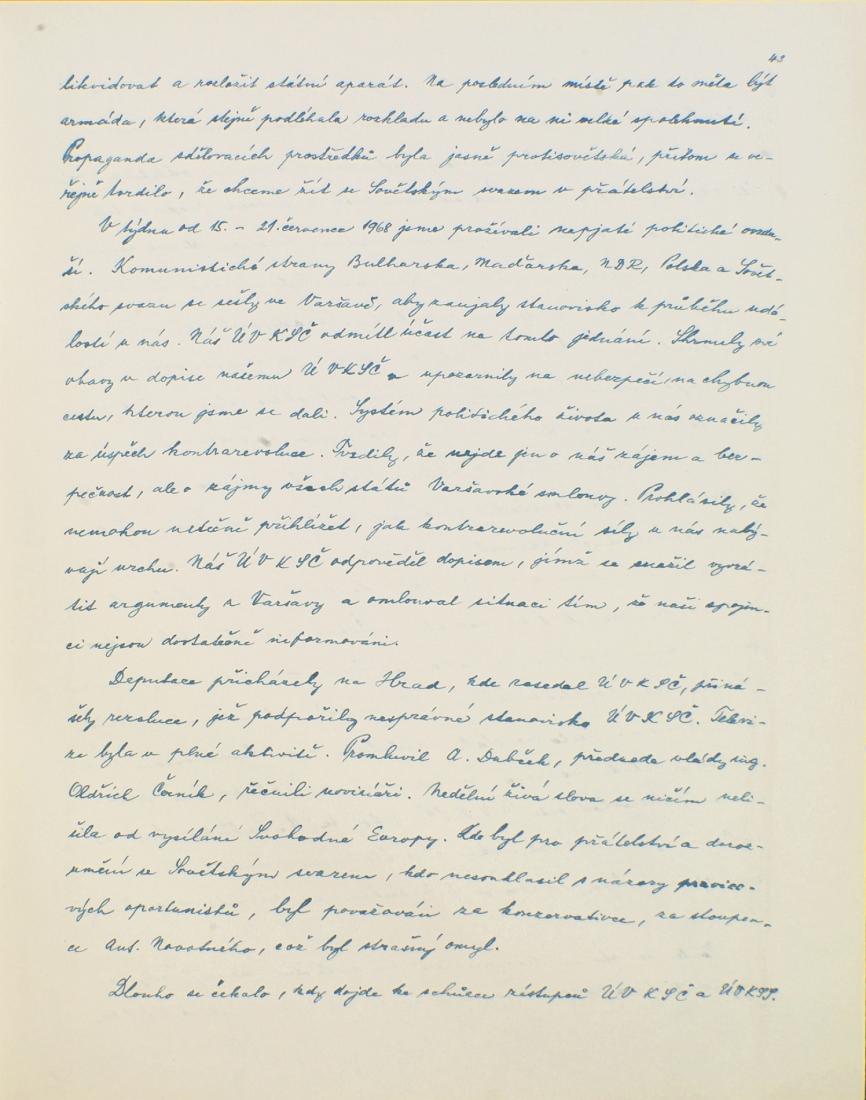 43
likvidovat a rozložit státní aparát. Na posledním místě pak to měla být
armáda, která stejně podléhala rozkladu a nebylo na ni velké spolehnutí.
Propaganda sdělovacích prostředků byla jasně protisovětská, přitom se ve-
řejně tvrdilo, že chceme žít se Sovětským svazem v přátelství.
V týdnu od 15. - 21. července 1968 jsme prožívali napjaté politické ovzdu-
ší. Komunistické strany Bulharska, Maďarska, NDR, Polska a Sovět-
ského svazu se sešly ve Varšavě, aby zaujaly stanovisko k průběhu udá-
lostí u nás. Náš ÚV KSČ odmítl účast na tomto jednání. Shrnuly své
obavy v dopise našemu ÚVKSČ a upozornily na nebezpečí, na chybnou
cestu, kterou jsme se dali. Systém politického života u nás označily
za úspěch kontrarevoluce. Tvrdily, že nejde jen o náš zájem a bez-
pečnost, ale o zájmy všech států Varšavské smlouvy. Prohlásily, že
nemohou netečně přihlížet, jak kontrarevoluční síly u nás nabý-
vají vrchu. Náš ÚV KSČ odpověděl dopisem, jímž se snažil vyvrá-
tit argumenty z Varšavy a omlouval situaci tím, že naši spojen-
ci nejsou dostatečně informováni.
Deputace přicházely na Hrad, kde zasedal ÚV KSČ, přiná-
šely rezoluce, jež podpořily nesprávné stanovisko ÚVKSČ. Televi-
ze byla v plné aktivitě. Promluvil A. Dubček, předseda vlády ing.
Oldřich Černík, řečnili novináři. Nedělní živá slova se ničím neli-
šila od vysílání Svobodné Evropy. Kdo byl pro přátelství a doroz-
umění se Sovětským svazem, kdo nesouhlasil s názory pravico-
vých oportunistů, byl považován za konzervativce, za stoupen-
ce Ant. Novotného, což byl strašný omyl.
Dlouho se čekalo, kdy dojde ke schůzce zástupců ÚV KSČ a ÚVKSSS.